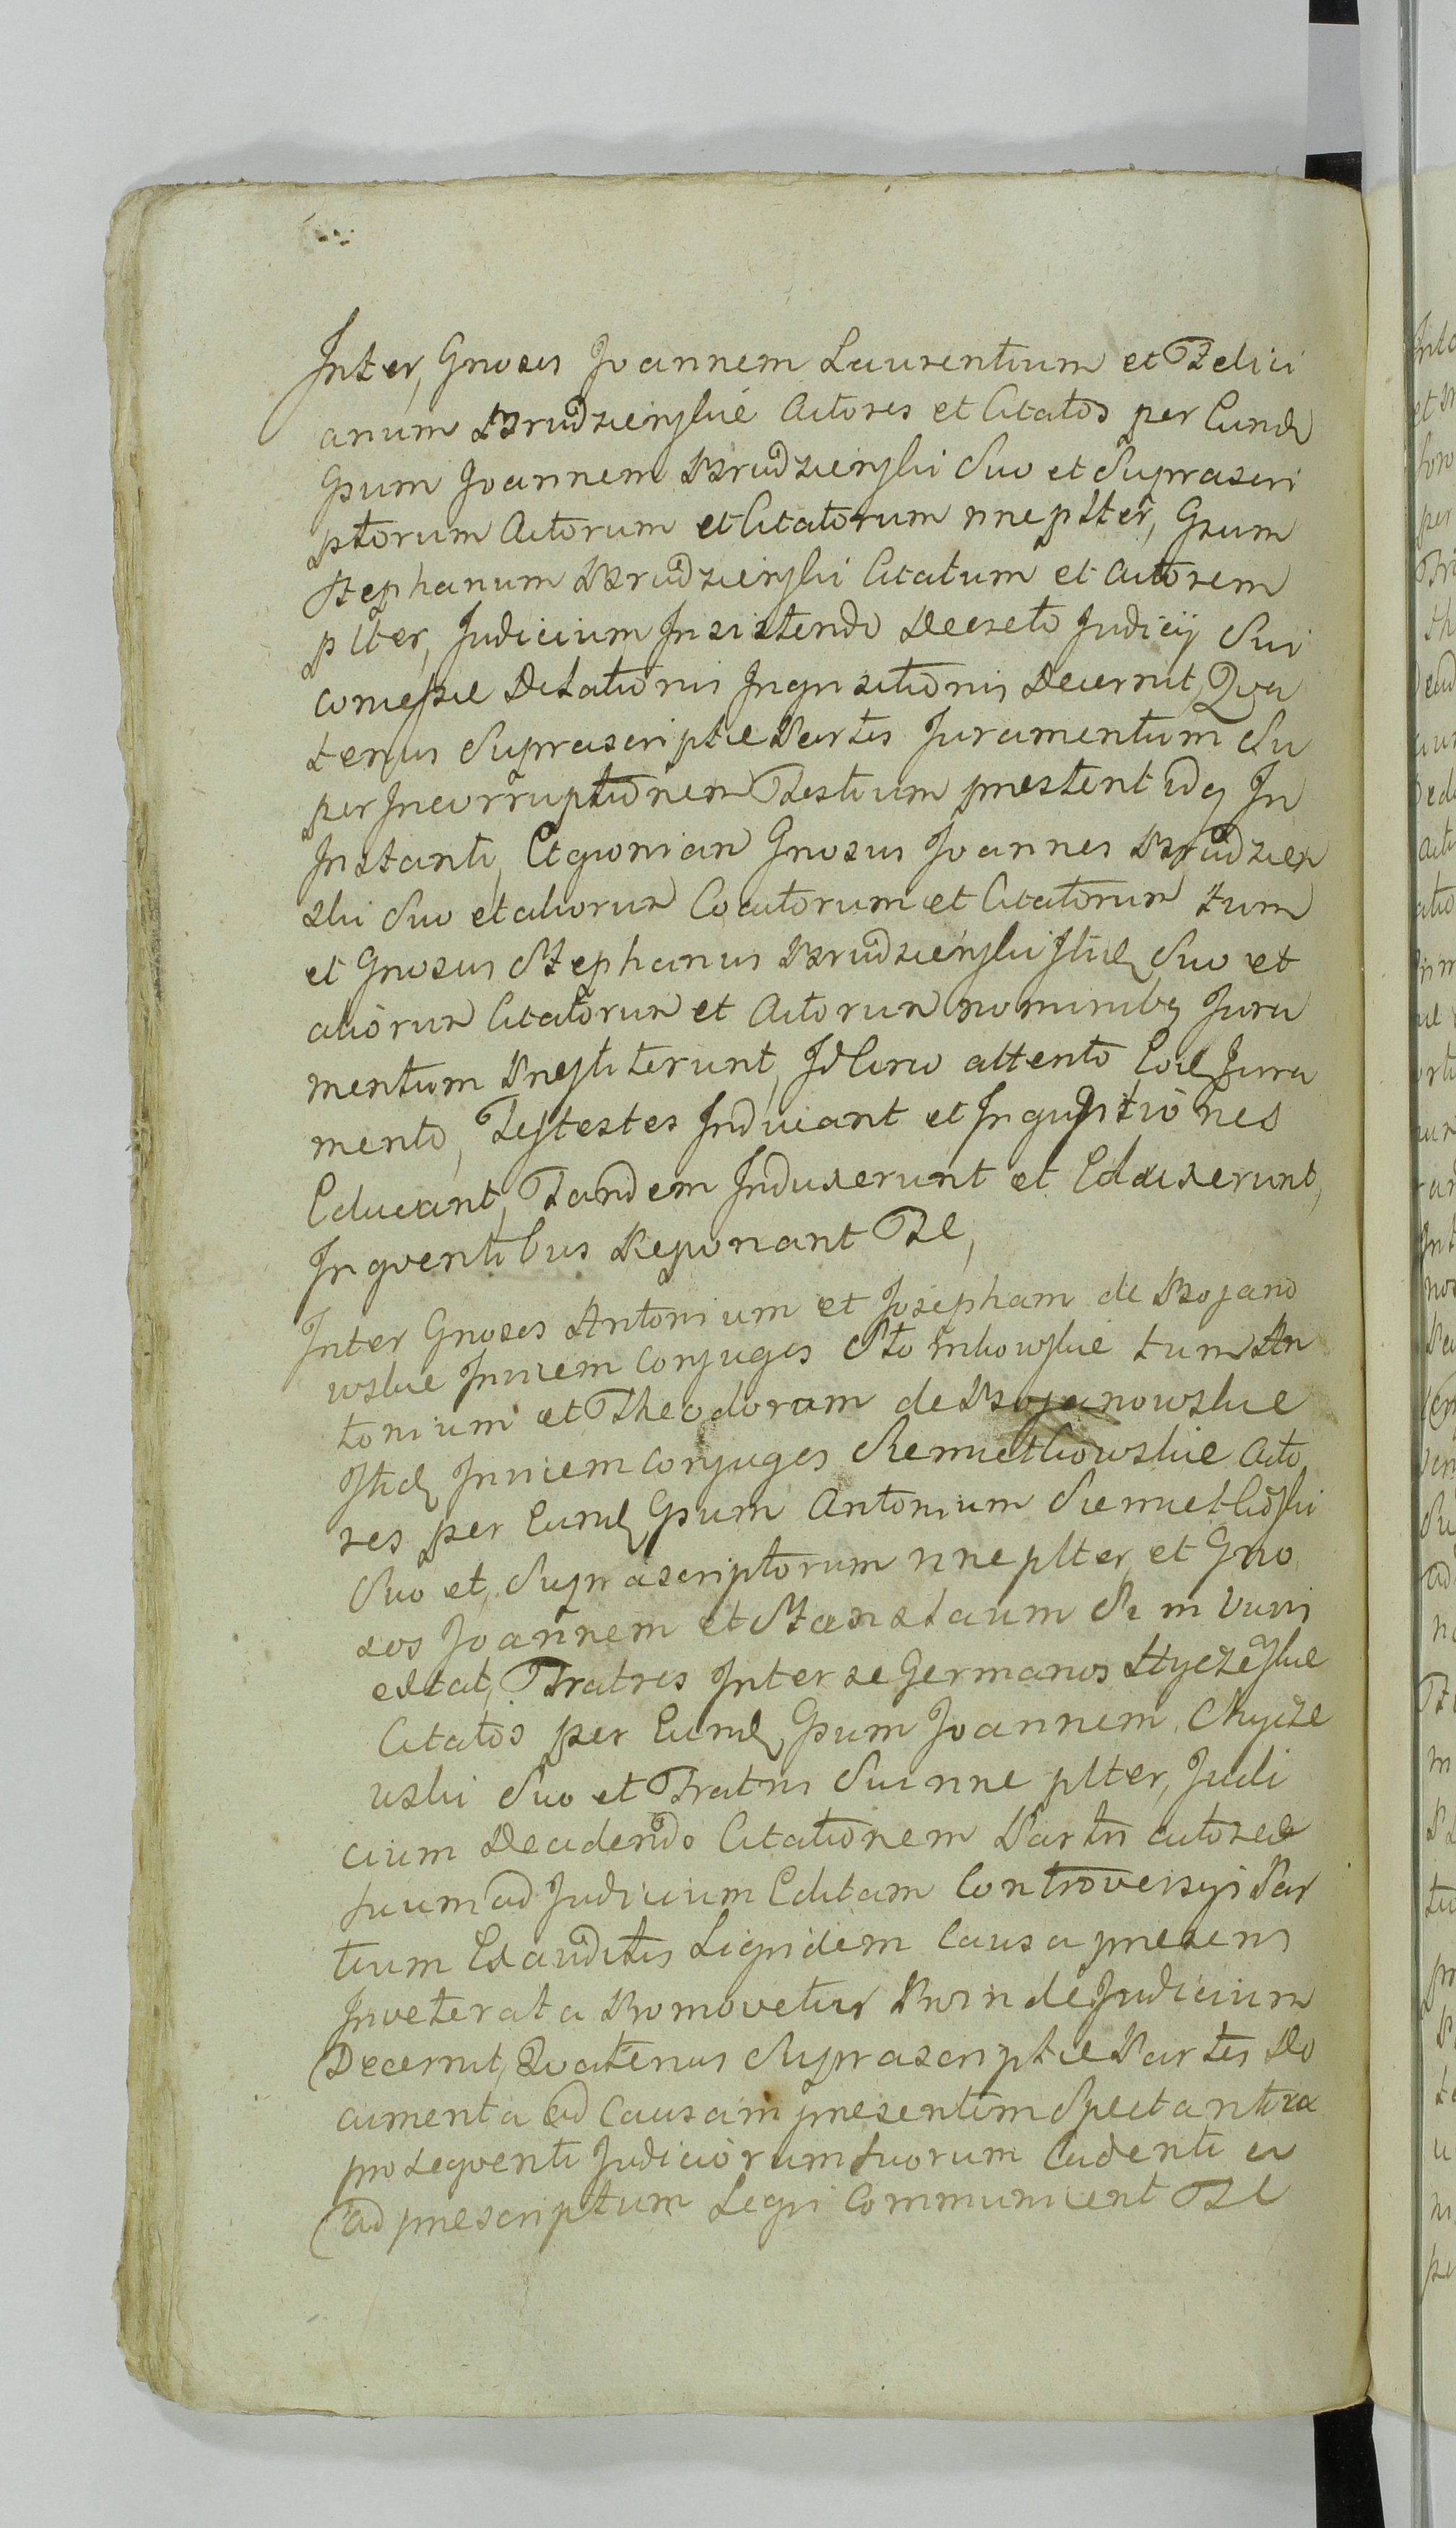 Inter, Gnosos Joannem Laurentium et Felici
anum Brudzienskie Actores et Citatos per Eund
Gsum Joannem Brudzienski Suo et Suprascri
ptorum Actorum et Citatorum nne plter, Gsum
Stephanum Brudzienski Citatum et Actorem
plter, Judicium Insistendo Decreto Judicij Sui
Comissie Dilationis Inqnsitionis Decernit, Qva
tenus Suprascriptae Partes Juramentum Su
per Incorruptionem Testium prestent idq In
Instanti, Et qvoniam Gnosus Joannes Brudzien
ski Suo et aliorum Coactorum et Citatorum tum
et Gnosus Stephanus Brudzienski Itid Suo et
aliorum Citatorum et Actorum nominibq Jura
mentum Prestiterunt, Idcirco attento Eod Jura
mento, Testestes Inducant et Inquisitiones
Educant, Tandem Induxerunt et Eduxerunt,
Inqventibus Reponant Fl,
Inter Gnosos Antonium et Josepham de Bojano
wskie Invicem Conjuges Stomkowskie tum An
tonium et Theodoram de Bojanowskie
Itid Invicem Conjuges Siemietkowskie Acto
res per Eund Gsum Antonium Siemietkoski
Suo et Suprascriptorum nne plter, et Gno
sos Joannem et Stanislaum Si in Vivis
extat, Fratres Inter se Germanos Hyczeskie
Citatos per Eund Gsum Joannem Chycze
wski Suo et Fratris Sui nne plter, Judi
cium Decidendo Citationem Partis actoree
suum ad Judicium Editam Controversijs Par
tium Exauditis Siqvidem Causa presens
Inveterata Promovetur Proinde Judicium
Decernit, Qvatenus Suprascriptae Partes Do
cumenta ad Causam presentem Spectantia
pro Seqventi Judiciorum suorum Cadenti ea
ad prescriptum Legis Communicent Fl